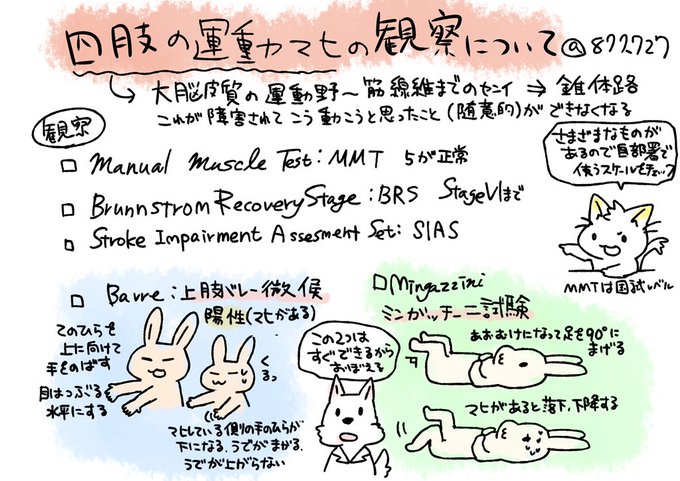 四肢の運動マヒの観察について @877727
→ 大脳皮質の運動野〜筋線維までのセンイ ⇒ 錐体路
これが障害されて こう動こうと思ったこと(随意的)ができなくなる
観察
□ Manual Muscle Test:MMT 5が正常
□ Brunnstrom Recovery Stage:BRS StageⅥまで
□ Stroke Impairment Assesment Set:SIAS
さまざまなものが
あるので自部署で
使うスケールをチェック
MMTは国試レベル
□ Barre:上肢バレー徴候
陽性(マヒがある)
てのひらを
上に向けて
手をのばす
目はつぶる
水平にする
くるっ
マヒしている側の手のひらが
下になる、うでがまがる、
うでが上がらない
この2つは
すぐできるから
おぼえる
□ Mingazzini
ミンガッチーニ試験
あおむけになって足を90°に
まげる
マヒがあると落下、下降する